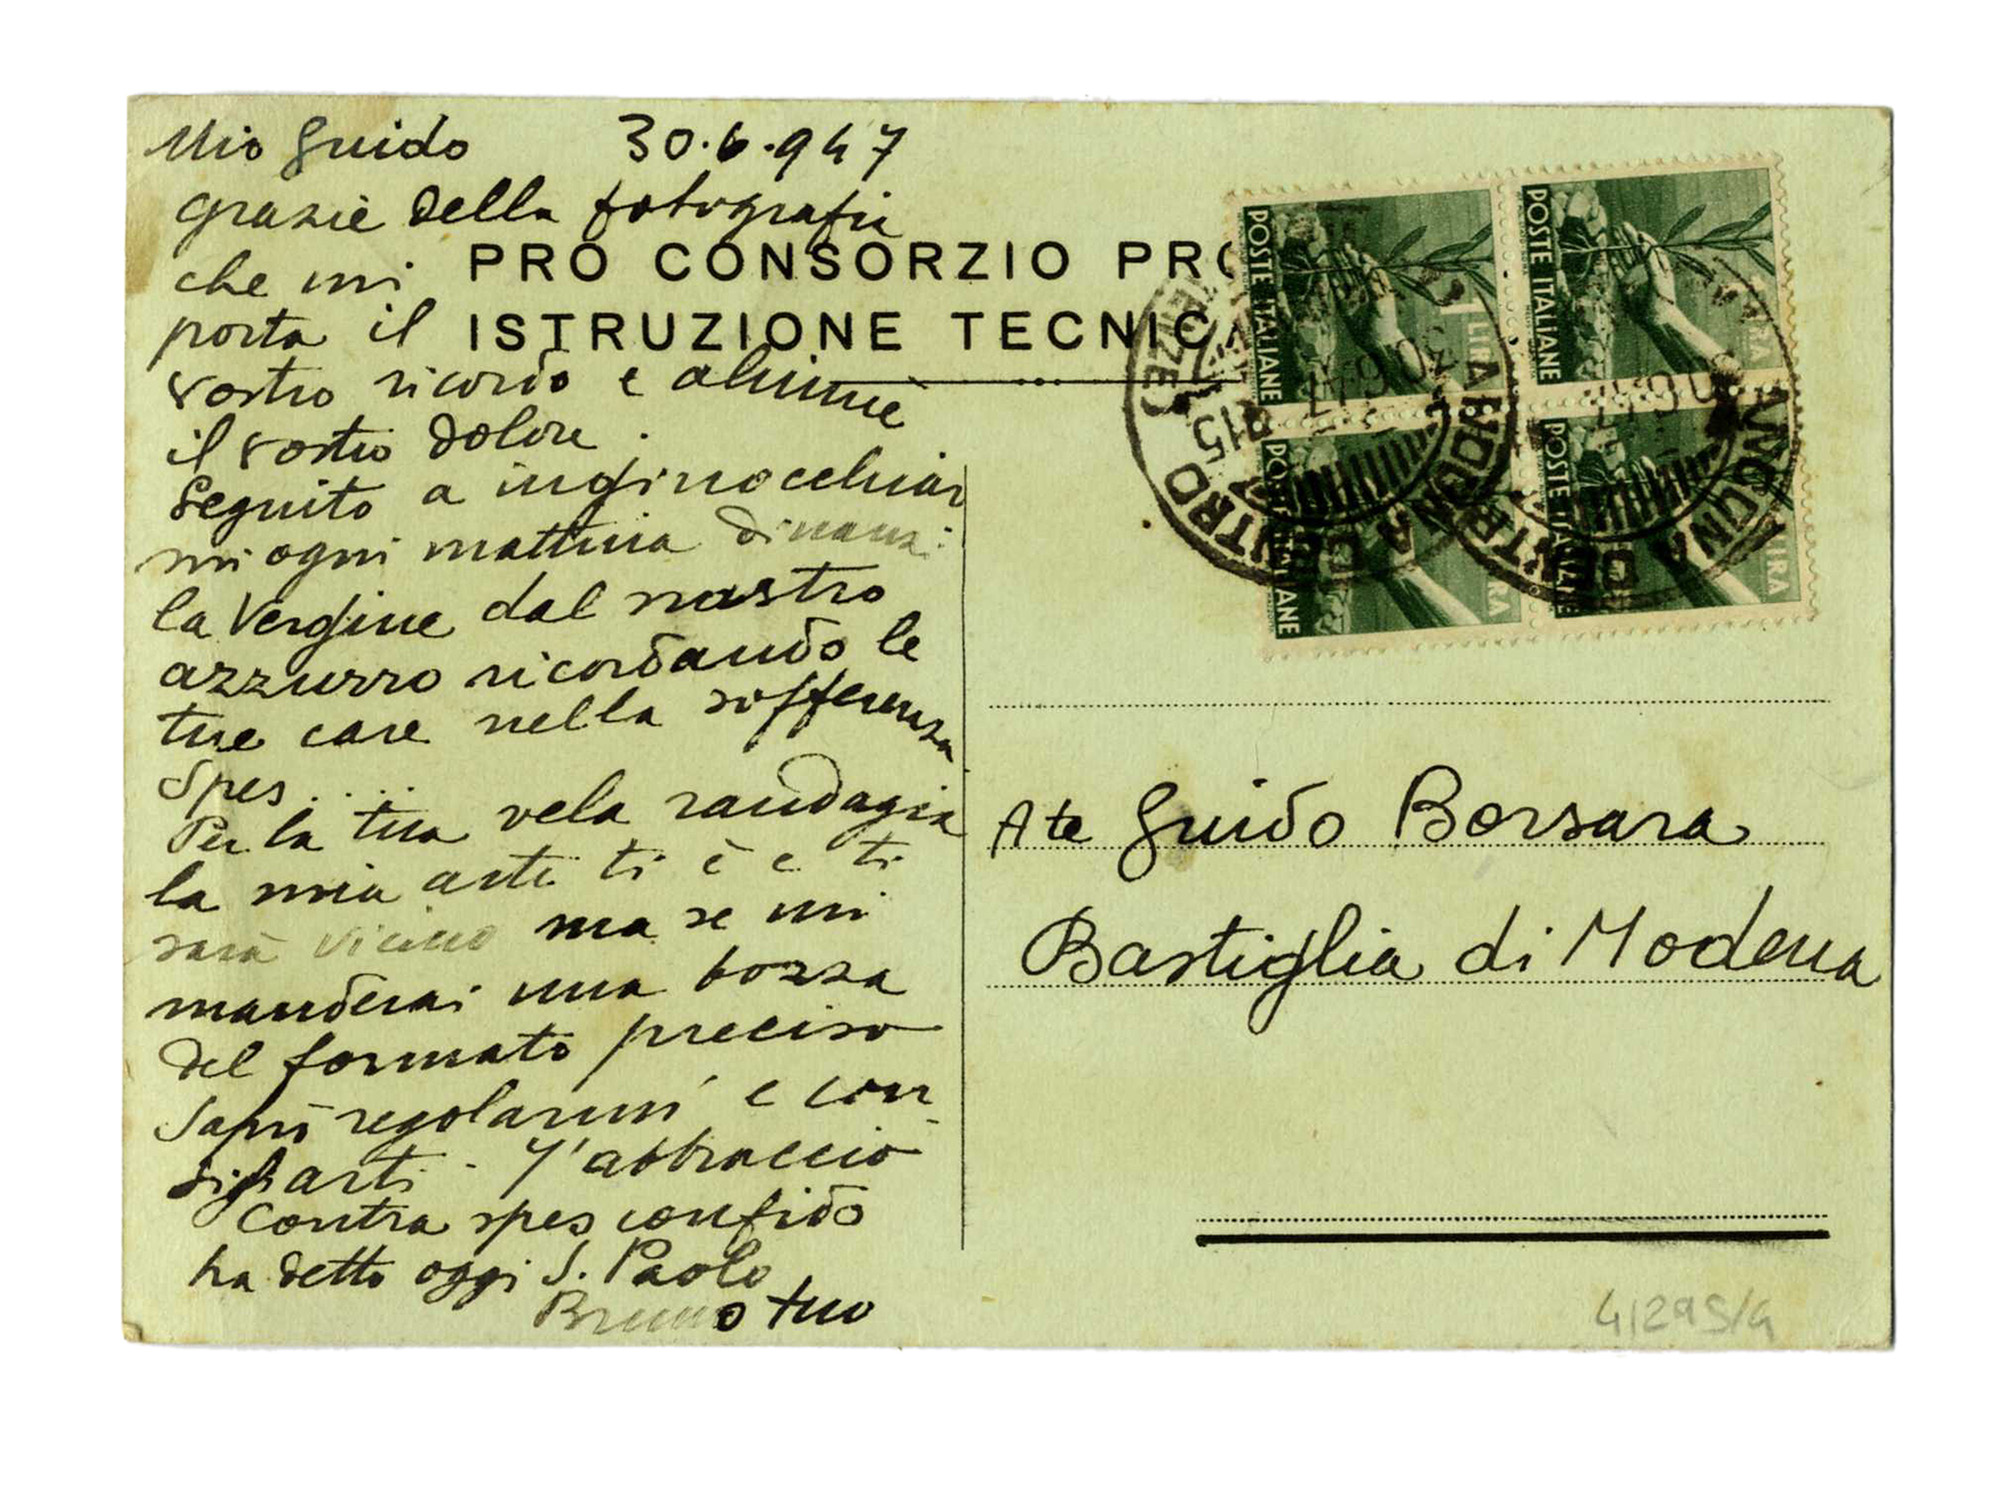 Mio Guido 30.6.947
grazie della fotografia
che mi
porta il
vostro ricordo e ahimè
il vostro dolore.
Seguito a inginocchiar
mi ogni mattina dinanzi
la Vergine dal nastro
azzurro ricordando le
tue care nella sofferenza
Spes....
Per la tua vela randagia
la mia arte ti è e ti
sarà vicino ma se mi
manderai una bozza
del formato preciso
saprò regolarmi e con
sigliarti. T'abbraccio
Contra spes confido
ha detto oggi S. Paolo
Bruno tuo
PRO CONSORZIO PRO
ISTRUZIONE TECNICA
POSTE ITALIANE 1 LIRA
POSTE ITALIANE LIRA
POSTE ITALIANE LIRA
POSTE ITALIANE LIRA
ANCONA CENTRO
ANCONA CENTRO
A te Guido Borsara
Bastiglia di Modena
41295/4